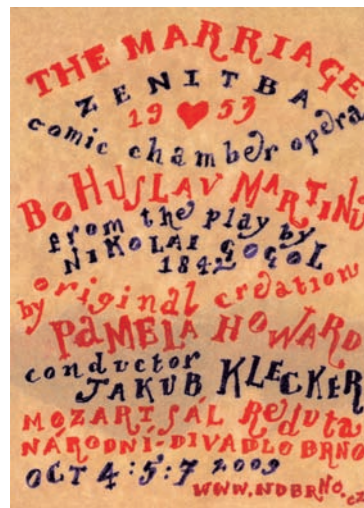 THE MARRIAGE
ZENITBA
19 ♥ 53
comic chamber opera
BOHUSLAV MARTINŮ
from the play by
NIKOLAI GOGOL
1842
original creation
by PAMELA HOWARD
conductor
JAKUB KLECKER
MOZART SÁL Reduta
NÁRODNÍ-DIVADLO BRNO
OCT 4:5:7 2009
WWW.NDBRNO.cz